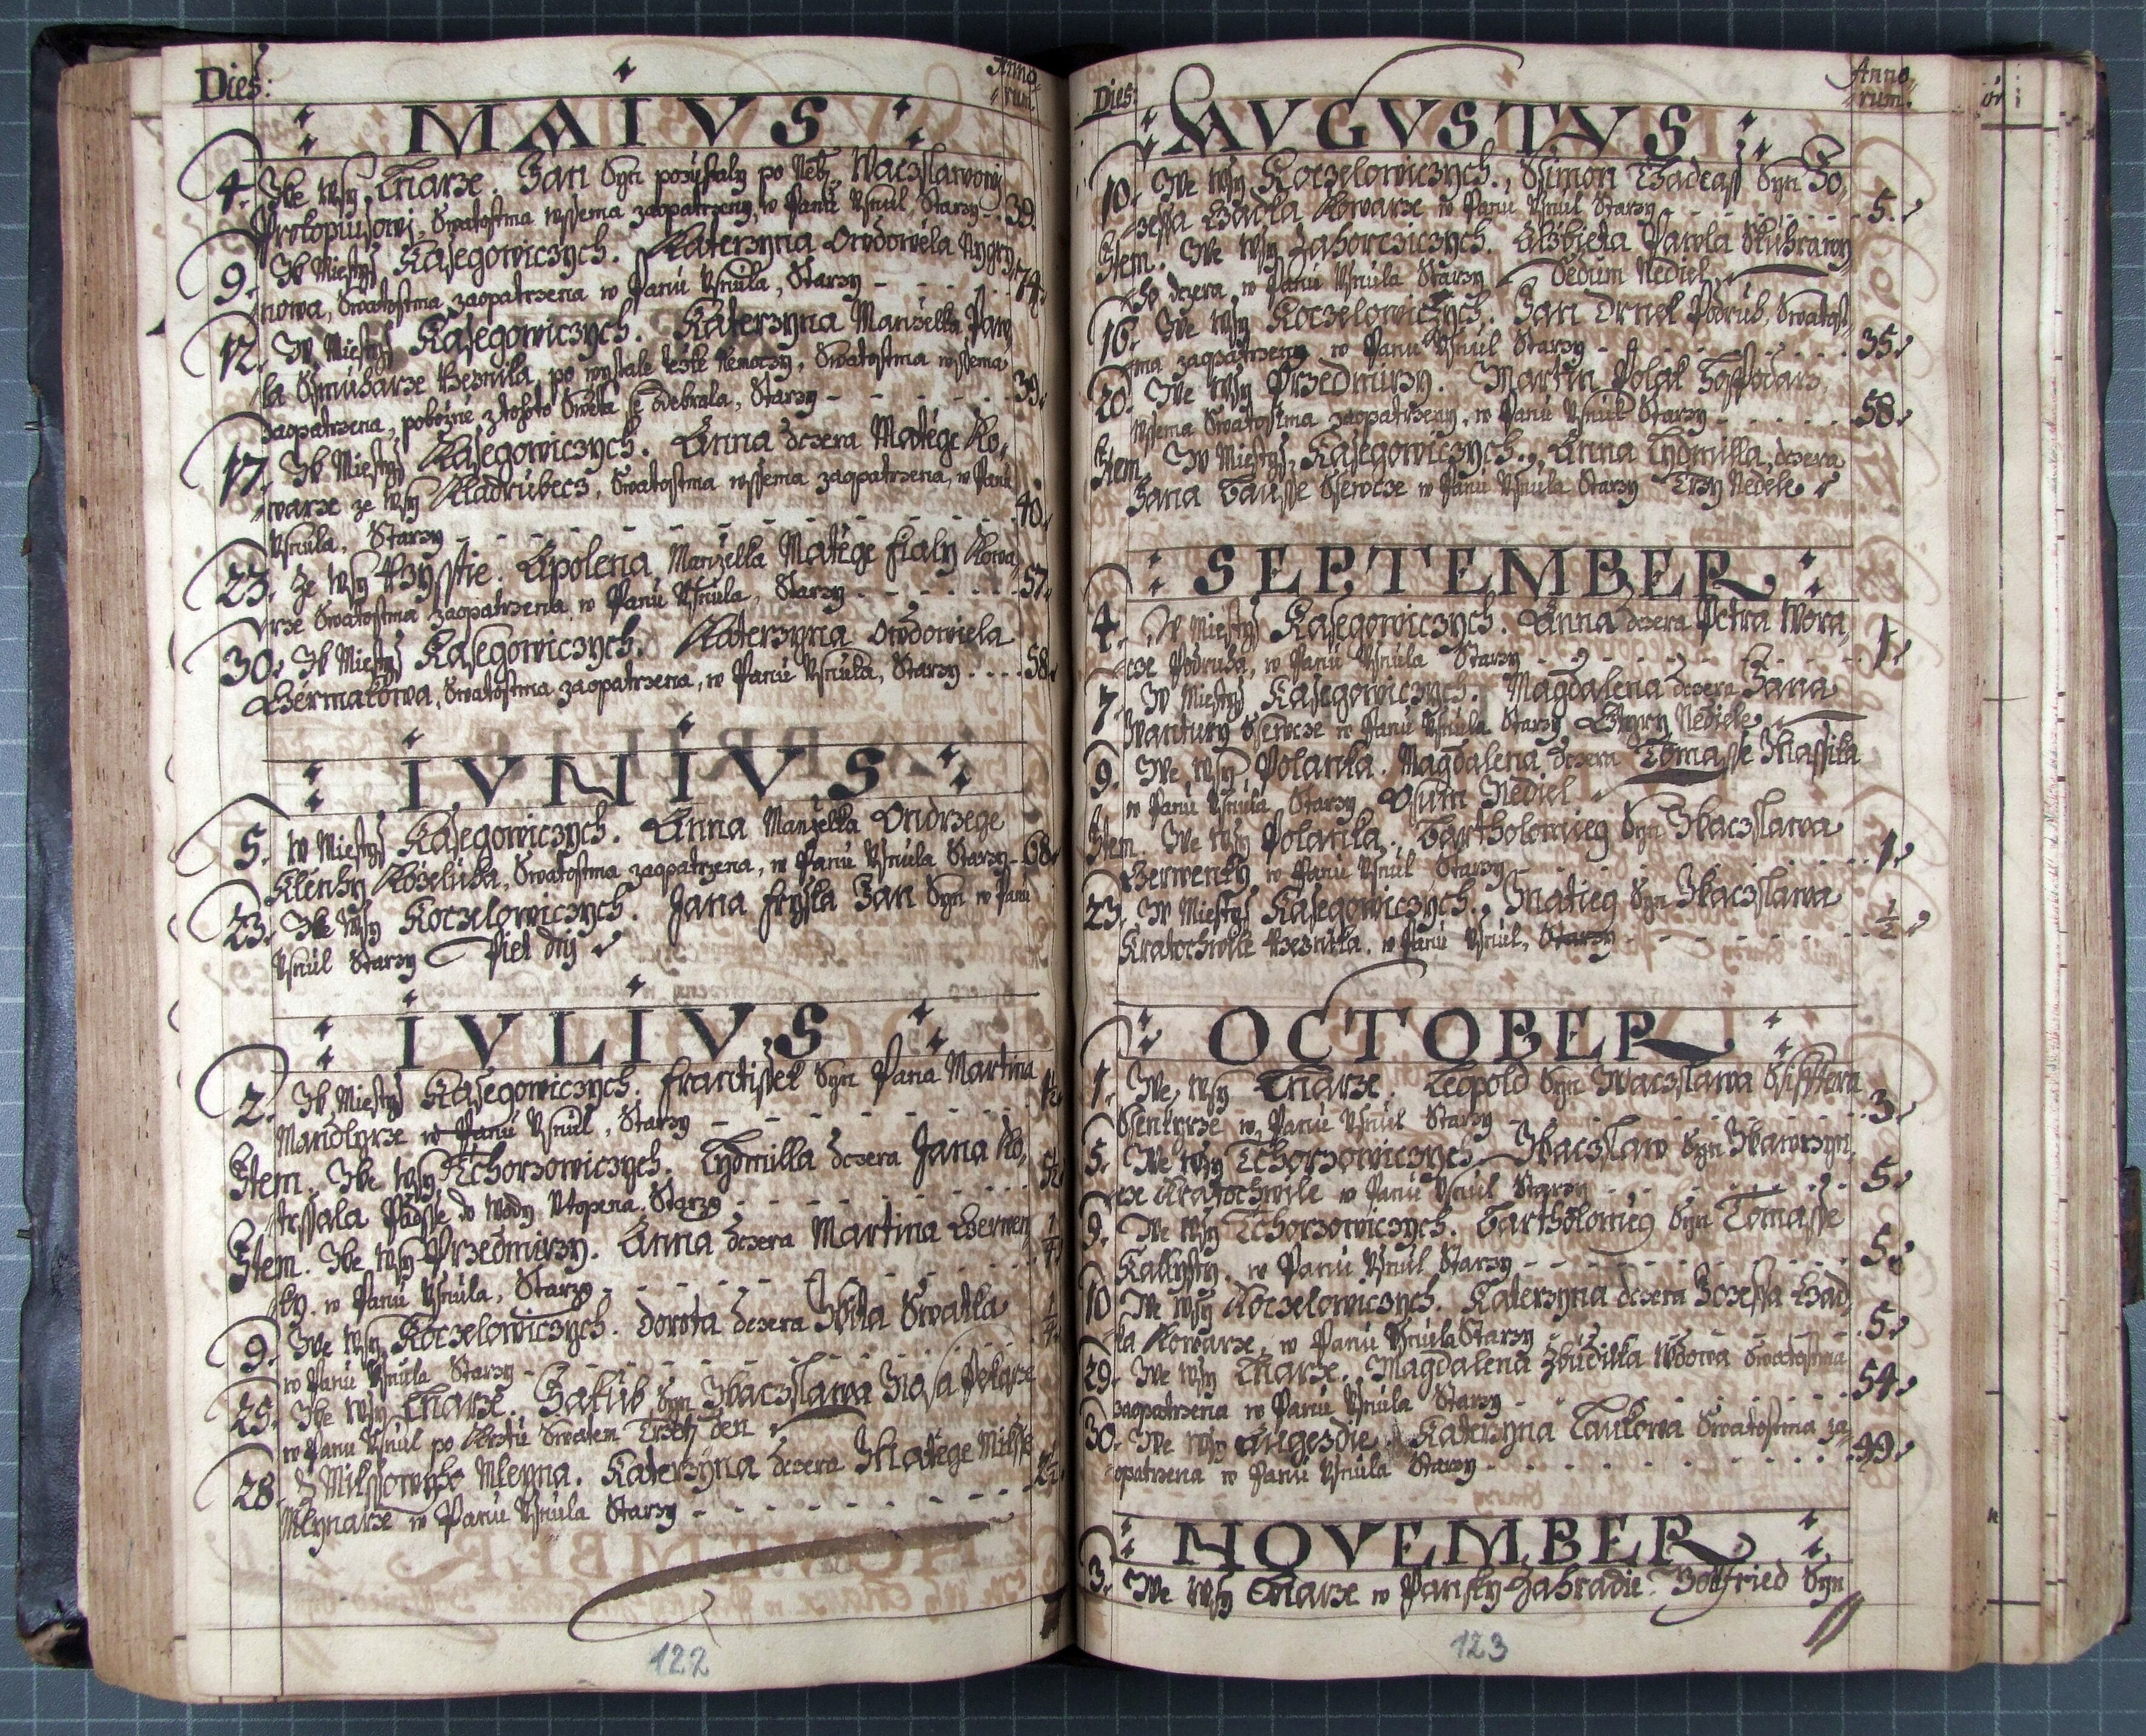 Dies:
Anno
rum.
MAIVS
4. We Wsy Tnarze. Jan Syn pozústaly po Neb. Waczslawowj
Prokopiusowj, Swatostma wssema zaopatrzeny, w Panú Vsnúl, Starzy - 39.
9. W Miestys Kasegowiczych. Katerzyna Owdowela
nowa, Swatostma zaopatrzena w Panú Vsnúla, Starzy - - - - 74.
12. W Miestys Kasegowiczych. Katerzyna Manzelka Paw
la Rzeznika, po wystale tezke Nemoczy, Swatostma wssema
zaopatrzena, pobozné z tohoto Swéta se odebrala, Starzy - - - - 39.
17. W Miestys Kasegowiczych. Anna dczera Matége Ko,
warze ze Wsy Kladrúbecz, Swatostma wssema zaopatrzena, w Panú
Vsnúla, Starzy - - - - 40.
23. Ze Wsy Apolena, Manzelka Matége Fialy Kowa,
rze Swatostma zaopatrzena, w Panú Vsnúla, Starzy - - - - 57.
30. W Miestys Kasegowiczych. Katerzyna Owdowiela
Czermakowa, Swatostma zaopatrzena, w Panú Vsnúla, Starzy . . . . 58.
IVNIVS
5. W Miestys Kasegowiczych. Anna Manzelka Ondrzege
Klenhy Kozelúha, Swatostma zaopatrzena, w Panú Vsnúla Starzy - 68.
23. We Wsy Koczelowiczych. Jana Jan Syn w Panú
Vsnúl Starzy Piet dnj
IVLIVS
2. W Miestys Kasegowiczych. Frantissek Syn Pana Martina
Mandlyrze w Panú Vsnúl, Starzy - - - - 1½
Item. We Wsy Tchorzowiczych. Lydmilla dczera Jana Ko,
trssala Padsse do Wody Vtopena. Starzy - - - -
Item. We Wsy Przedmirzy. Anna dczera Martina Czerwen,
ky. w Panú Vsnúla, Starzy - - - - ¼
9. We Wsy Koczelowiczych. Dorota dczera Wita Swatka
w Panú Vsnúla Starzy - - - - ¼
25. We Wsy Tnarze. Jakúb Syn Waczslawa Pekarze
w Panu Vsnúl po Krztú Swatem Trzetj den
28. Z Mikssowyho Mleyna. Katerzyna dczera Matége Miksse
Mlynarze w Panú Vsnúla Starzy - - - -
122
Dies:
Anno
rum.
AVGVSTVS
10. We Wsy Koczelowiczych., Ssimon Tadeass Syn Jo,
zeffa Kowarze w Panú Vsnúl Starzy - - - - 5.
Item. We Wsy Zahorcziczych. Alzbieta Pawla Skúhrawy
ho dczera, w Panú Vsnúla Starzy Sedum Nediel,
16. We Wsy Koczelowiczych, Jan Drnek Podrúh, Swatost
ma zaopatrzeny w Panú Vsnúl Starzy - - - - 35.
20. We Wsy Przedmirzy. Martin Polak Hospodarz,
Wssema Swatostma zaopatrzeny, w Panú Vsnúl Starzy - - - - 58.
Item. W Miestys, Kasegowiczych., Anna Lydmilla, dczera
Jana Ssewcze w Panú Vsnúla Starzy Trzy Nedele
SEPTEMBER
4. W Miestys Kasegowiczych. Anna dczera Petra Wora,
cze Podruha, w Panú Vsnúla Starzy - - - - 1.
7. W Miestys Kasegowiczych. Magdalena dczera Jana
Wantúry Ssewcze w Panú Vsnúla Starzy Cztyry Nediele
9. We Wsy Polanka. Magdalena dczera Tomasse
w Panú Vsnúla Starzy Osum Nediel
Item. We Wsy Polanka. Bartholomieg Syn Waczslawa
Czerwenky w Panú Vsnúl Starzy - - - - 1.
23. W Miestys Kasegowiczych., Matieg Syn Waczslawa
Kratochwile Rzeznika. w Panú Vsnúl, Starzy - - - - ½
OCTOBER
1. We Wsy Tnarze. Leopold Syn Waczslawa
Ssenkyrze w Panú Vsnúl Starzy - - - - 3.
5. We Wsy Tchorzowiczych. Waczslaw Syn Wawrzyn,
cze Kratochwile w Panú Vsnúl Starzy - - - - 5.
9. We Wsy Tchorzowiczych. Bartholomieg Syn Tomasse
Kallysty. w Panú Vsnúl Starzy - - - - 5.
10 We Wsy Koczelowiczych. Katerzyna dczera Jozeffa
Kowarze, w Panú Vsnúla Starzy - - - - 5.
29. We Wsy Tnarze. Magdalena Wdowa Swatostma
zaopatrzena w Panú Vsnúla Starzy - - - - 54.
30. We Wsy Augezdie. Katerzyna Swatostma za
opatrzena w Panú Vsnúla Starzy - - - - 49.
NOVEMBER
3. We Wsy Tnarze w Pansky Zahradie. Gottfried Syn
123